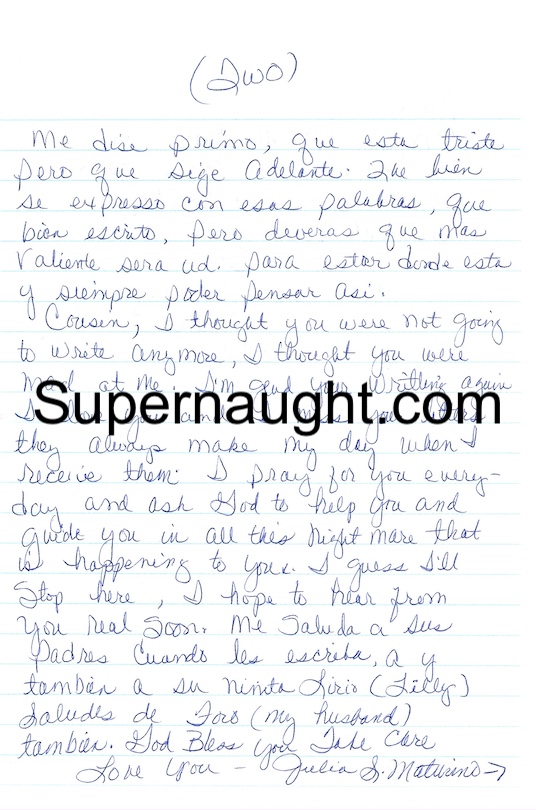 (Two)
Me dise primo, que esta triste
pero que sige adelante. Que bien
se expresso con esas palabras, que
bien escrito, pero deveras que mas
Valiente sera ud. para estar donde esta
y siempre poder pensar asi.
Cousin, I thought you were not going
to write anymore, I thought you were
mad at me. I'm glad your writting again
Supernaught.com
I love you and I miss your letters
they always make my day when I
receive them. I pray for you every-
day and ask God to help you and
guide you in all this night mare that
is happening to you. I guess I'll
Stop here, I hope to hear from
you real soon. Me Saluda a sus
Padres Cuando les escriba, a y
tambien a su ninita Lirio (Lilly)
Saludes de Toro (my husband)
tambien. God Bless you Take Care
Love You - Julia S. Maturino →